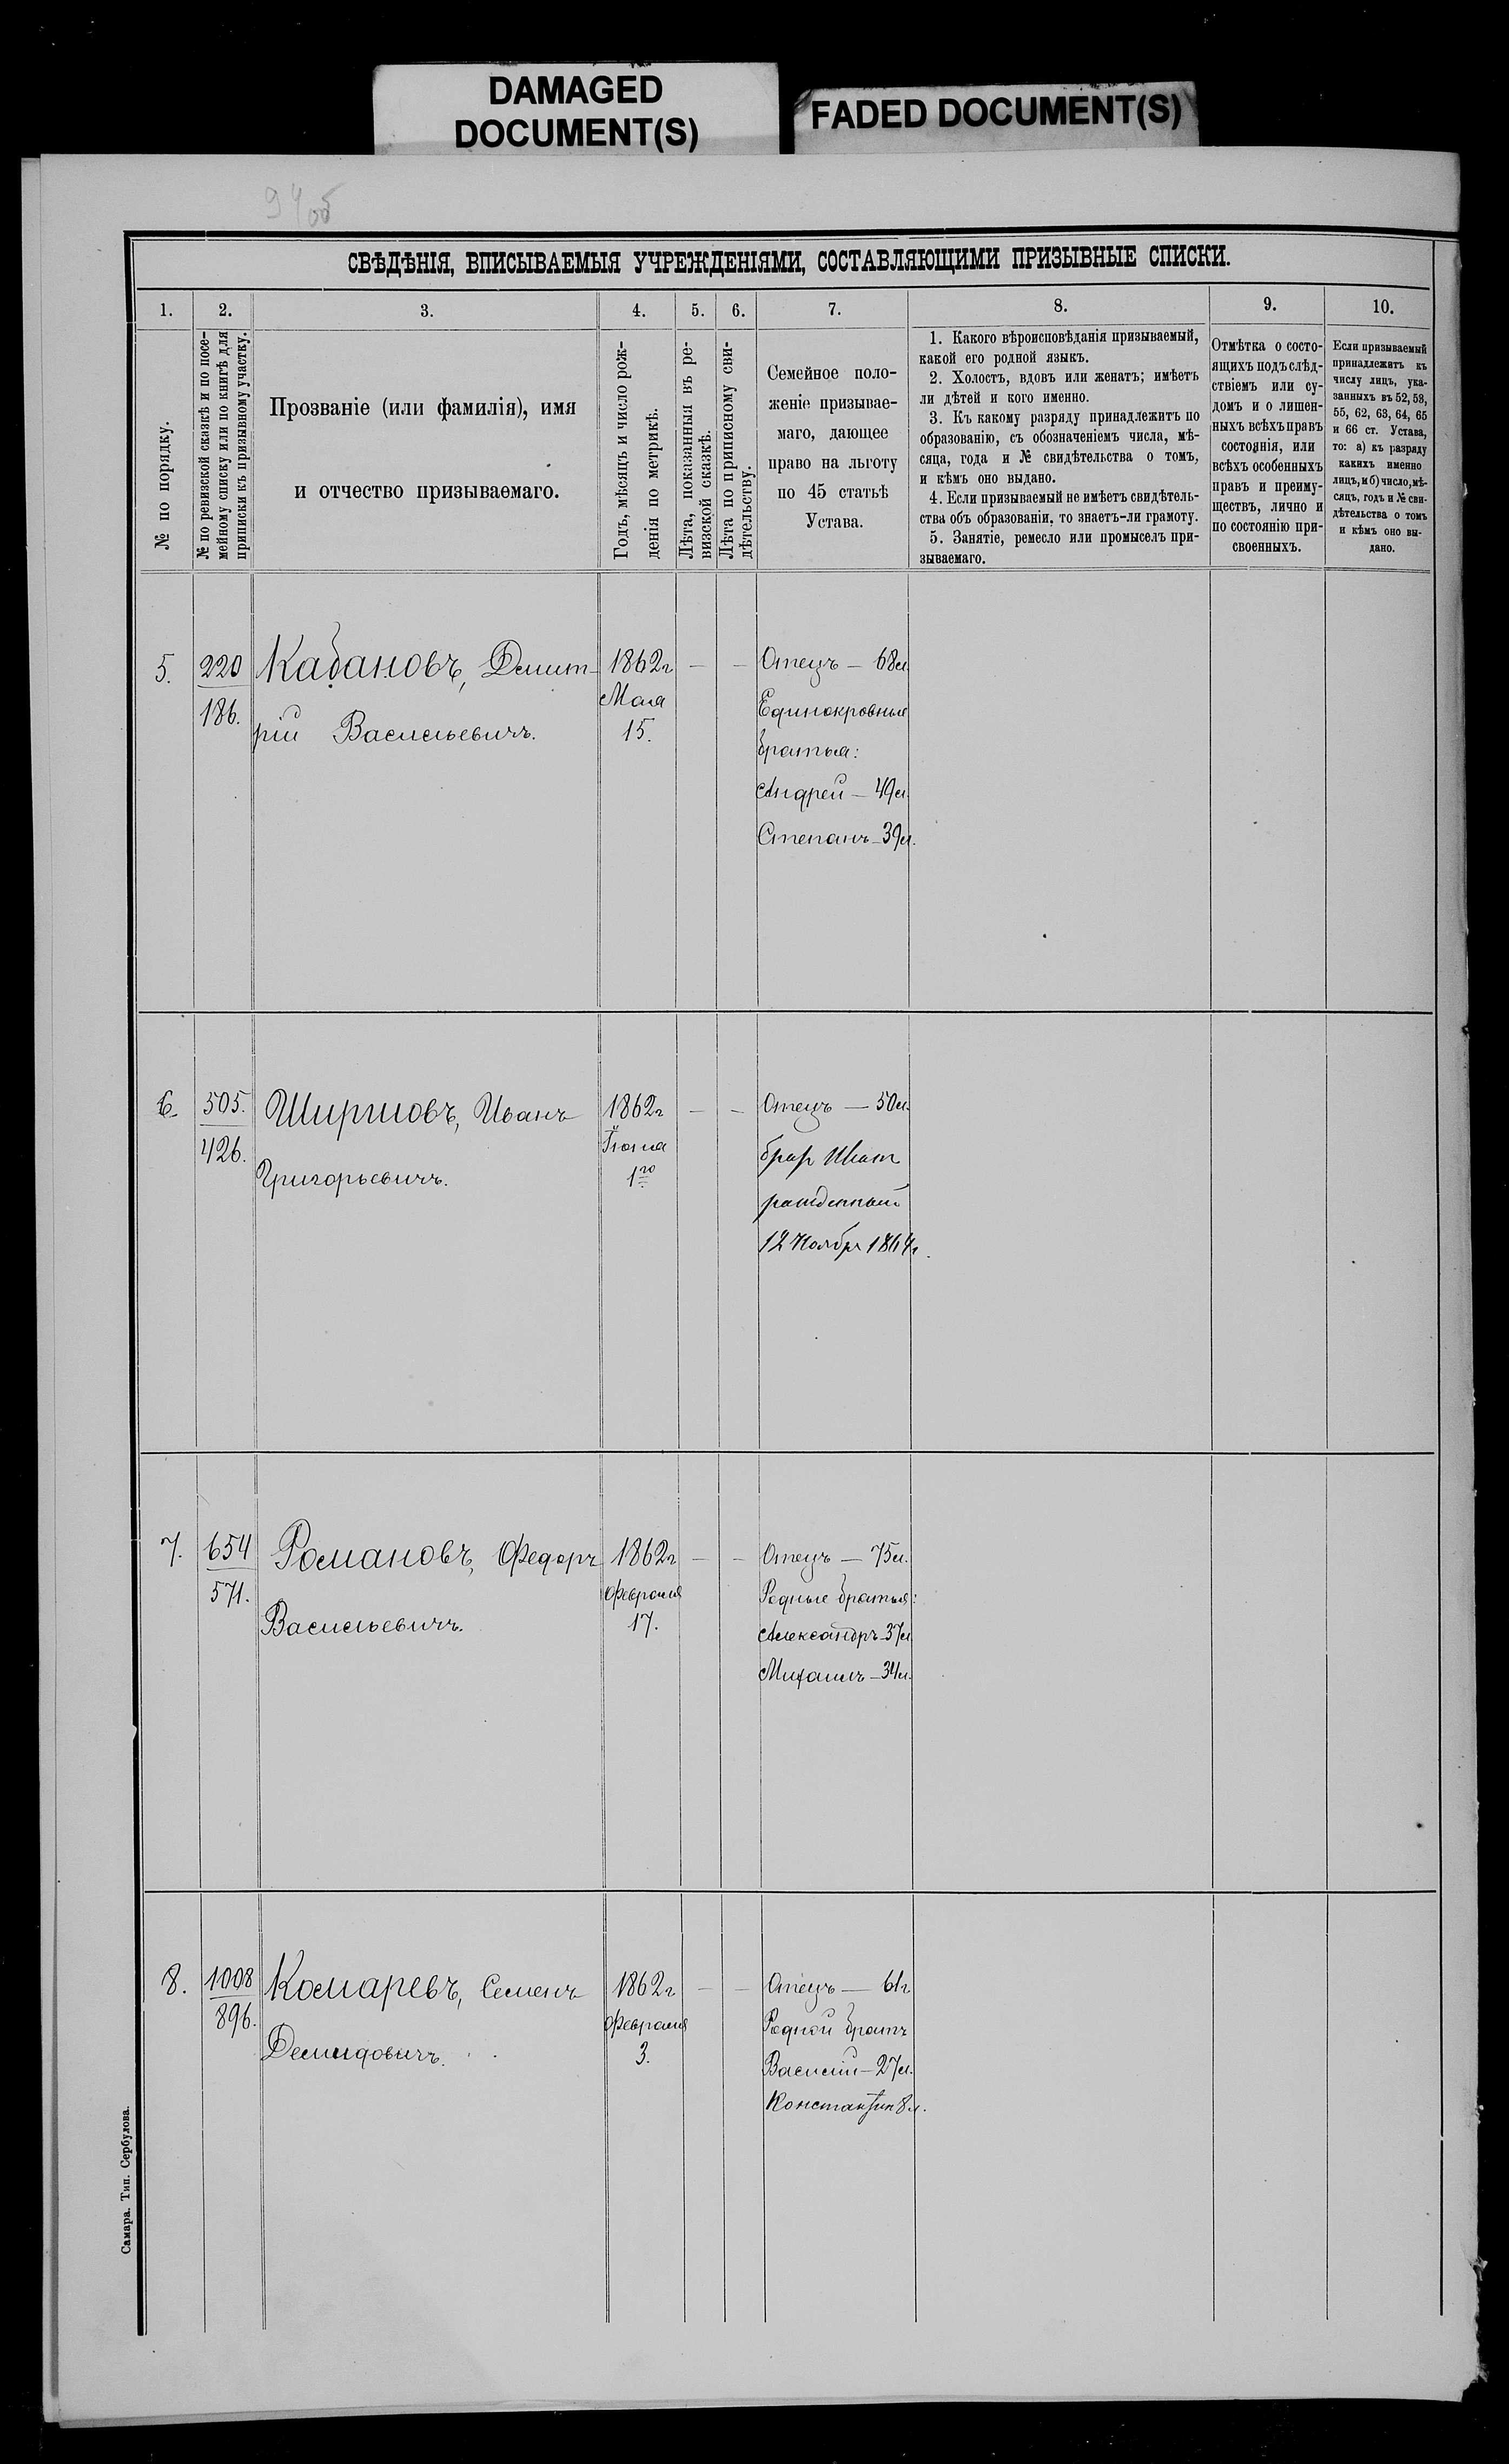 DAMAGED
DOCUMENT(S)
FADED DOCUMENT(S)
94 об
СВѢДѢНІЯ, ВПИСЫВАЕМЫЯ УЧРЕЖДЕНІЯМИ, СОСТАВЛЯЮЩИМИ ПРИЗЫВНЫЕ СПИСКИ.
1.
2.
3.
4.
5.
6.
7.
8.
9.
10.
№ по порядку.
№ по ревизской сказкѣ и по посе-
мейному списку или по книгѣ для
приписки къ призывному участку.
Прозваніе (или фамилія), имя
и отчество призываемаго.
Годъ, мѣсяцъ и число рож-
денія по метрикѣ.
Лѣта, показанныя въ ре-
визской сказкѣ.
Лѣта по приписному сви-
дѣтельству.
Семейное поло-
женіе призывае-
маго, дающее
право на льготу
по 45 статьѣ
Устава.
1. Какого вѣроисповѣданія призываемый,
какой его родной языкъ.
2. Холостъ, вдовъ или женатъ; имѣетъ
ли дѣтей и кого именно.
3. Къ какому разряду принадлежитъ по
образованію, съ обозначеніемъ числа, мѣ-
сяца, года и № свидѣтельства о томъ,
и кѣмъ оно выдано.
4. Если призываемый не имѣетъ свидѣтель-
ства объ образованіи, то знаетъ-ли грамоту.
5. Занятіе, ремесло или промыселъ при-
зываемаго.
Отмѣтка о состо-
ящихъ подъ слѣд-
ствіемъ или су-
домъ и о лишен-
ныхъ всѣхъ правъ
состоянія, или
всѣхъ особенныхъ
правъ и преиму-
ществъ, лично и
по состоянію при-
своенныхъ.
Если призываемый
принадлежитъ къ
числу лицъ, ука-
занныхъ въ 52, 53,
55, 62, 63, 64, 65
и 66 ст. Устава,
то: а) къ разряду
какихъ именно
лицъ, и б) число, мѣ-
сяцъ, годъ и № сви-
дѣтельства о томъ
и кѣмъ оно вы-
дано.
5.
220
186.
Кабановъ, Дмит-
рій Васильевичъ.
1862г
Мая
15.
—
—
Отецъ — 68л
Единокровные
братья:
Андрей — 49л.
Степанъ — 39л.
6.
505.
426.
Ширшовъ, Иванъ
Григорьевичъ.
1862г
Іюня
1го
—
—
Отецъ — 50л.
братъ Иванъ
рожденный
12 Ноября 1864г.
7.
654
571.
Романовъ, Федоръ
Васильевичъ.
1862г
Февраля
17.
—
—
Отецъ — 75л.
Родные братья:
Александръ — 37л
Михаилъ — 34л.
8.
1008
896.
Комаревъ, Семенъ
Демидовичъ.
1862г
Февраля
3.
—
—
Отецъ — 61г.
Родной братъ
Василій — 27л.
Константин 8л.
Самара. Тип. Сербулова.